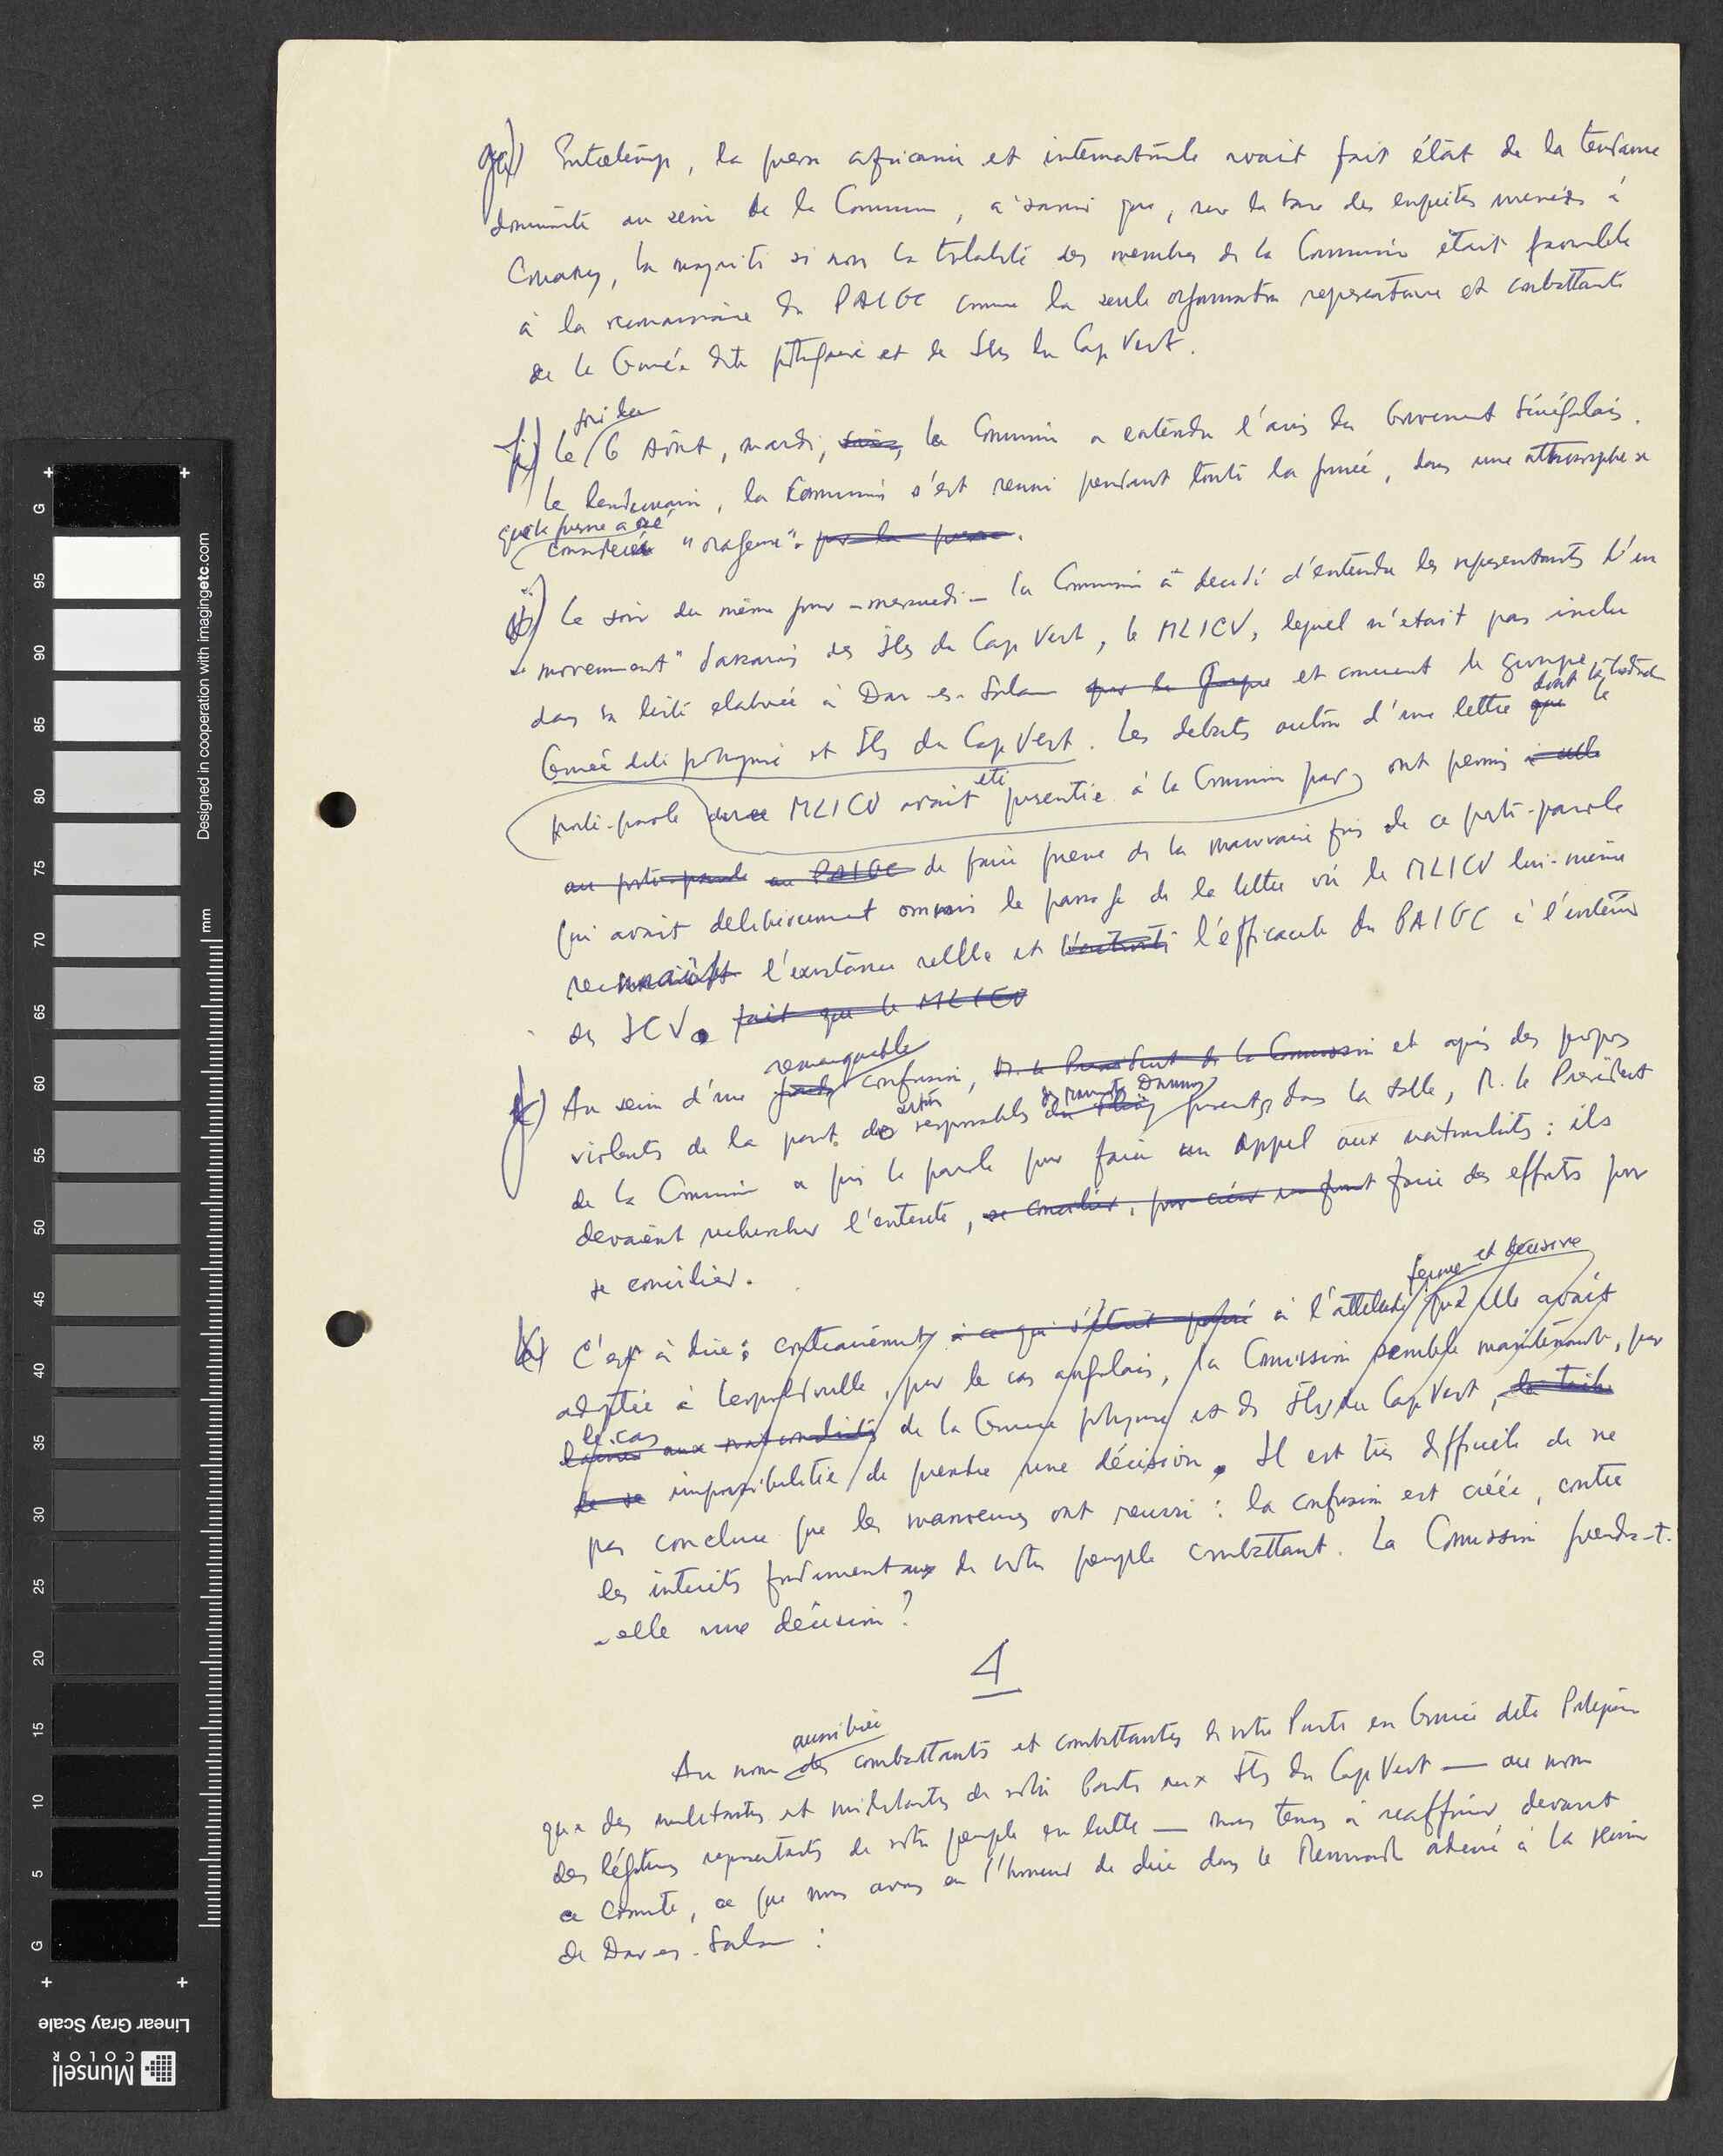 Entretemps, la presse africaine et internationale avait fait état de la tendance
dominante au sein de la Commission, à savoir que, sur la base des enquêtes menées à
Conakry, la majorité si non la totalité des membres de la Commission était favorable
à la reconnaissance du PAIGC comme la seule organisation representative et combattante
de la Guinée dite portugaise et des Iles du Cap Vert.
soir du
Le 6 Août, mardi, la Commission a entendu l'avis du Gouvernement Sénégalais.
Le lendemain, la Commission s'est reuni pendant toute la journée, dans une atmosphère
que la presse a
considerée "orageuse". par la presse.
Le soir du même jour - mercredi - la Commission a decidé d'entendre les representants d'un
"mouvement" des Iles du Cap Vert, le MLICV, lequel n'était pas inclu
dans la liste elaborée à Dar-es-Salam et concernant le groupe
dont la
Guinée dite portugaise et Iles du Cap Vert. Les debats autour d'une lettre que le
été
porte-parole du MLICV avait presentée à la Commission par, ont permis
au porte-parole au PAIGC de faire preuve de la mauvaise foi de ce porte-parole
qui avait deliberement ommis le passage de la lettre où le MLICV lui-même
l'existence reelle et l'efficacité du PAIGC à l'intérieur
des ICV. fait que le MLICV
remarquable
Au sein d'une confusion, M. le President de la Commission et après des propos
violents de la part des responsables presents dans la salle, M. le Président
de la Commission a pris la parole pour faire un appel aux nationalistes: ils
devaient rechercher l'entente, se concilier, faire des efforts pour
se concilier.
ferme et décisive
k) C'est à dire: contrairement à ce qui s'était passé à l'attitude qu'elle avait
adoptée à Leopoldville, pour le cas angolais, la Commission semble maintenant, pour
le cas
aux nationalistes de la Guinée portugaise et des Iles du Cap Vert,
de se impossibilitée de prendre une décision. Il est très difficile de ne
pas conclure que les manoeuvres ont reussi: la confusion est créée, contre
les interêts fondamentaux de notre peuple combattant. La Comission prendra-t-
-elle une décision?
4
aussi bien
Au nom des combattants et combattantes de notre Parti en Guinée dite Portugaise
que des militantes et militants de notre Parti aux Iles du Cap Vert — au nom
des légitimes representants de notre peuple en lutte — nous tenons à reaffirmer devant
ce Comité, ce que nous avons eu l'honneur de dire dans le Memorandum à la reunion
de Dar-es-Salam:
G
95
90
85
80
75
70
65
60
55
50
45
40
35
30
25
20
15
10
5
G
mm
Designed in cooperation with imagingetc.com
Linear Gray Scale
Munsell
COLOR